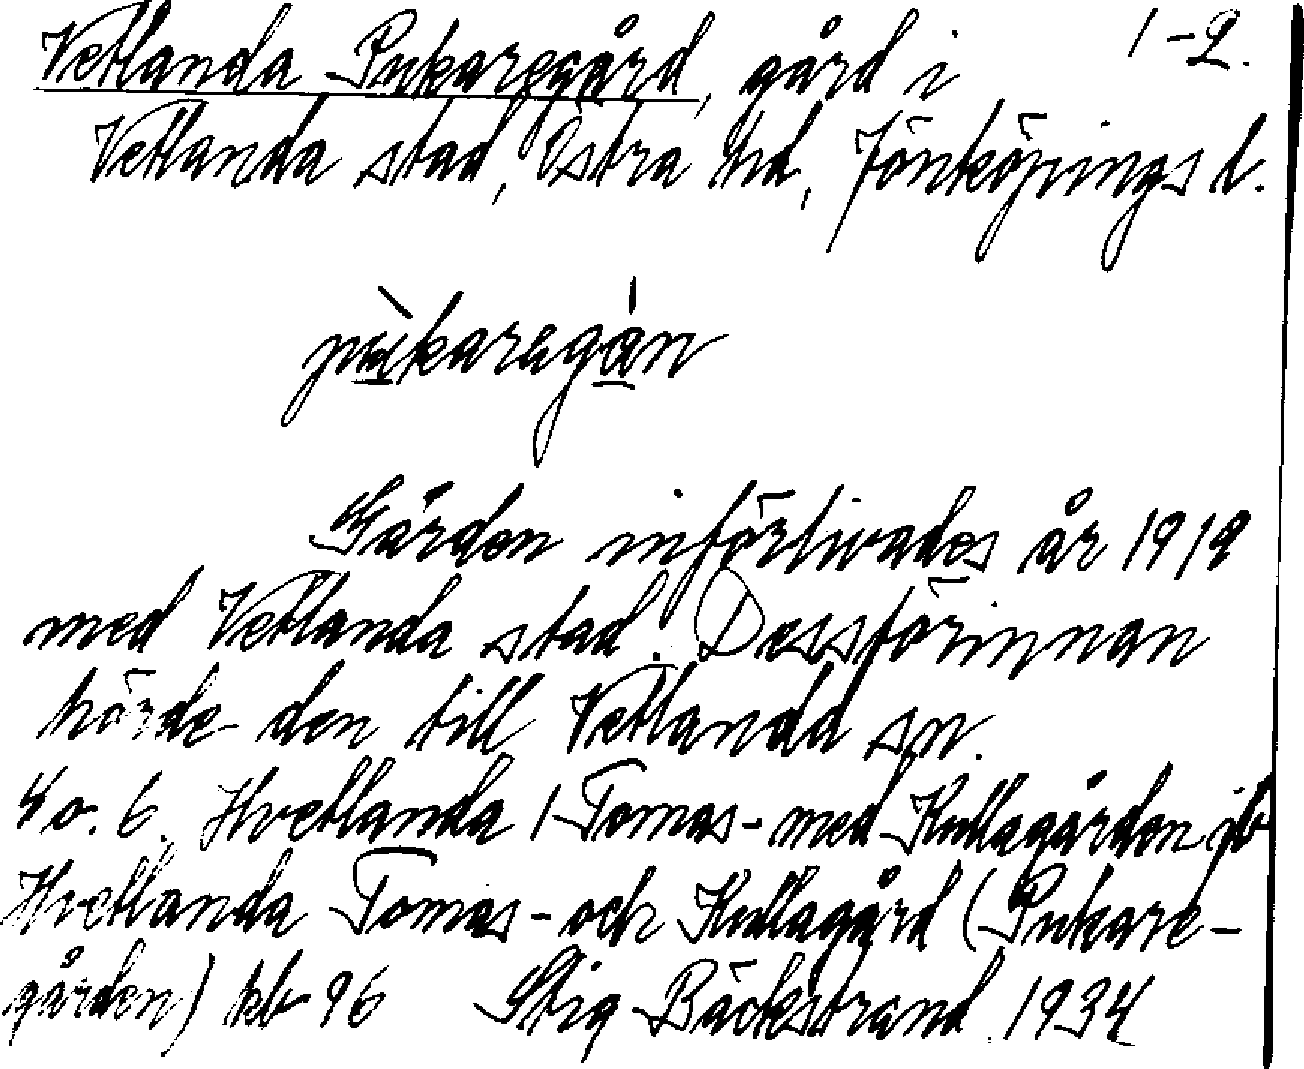 Vetlanda Pukaregård, gård i 1-2.
Vetlanda stad, Östra hd, Jönköpings l.
pùkaregán
Gården införlivades år 1919
med Vetlanda stad. Dessförinnan
hörde den till Vetlanda sn.
Hvetlanda 1 Tomas- med Kullagården jb
Hvetlanda Tomas- och Kullagård (Pukare-
gården) kb 96 Stig Bäckstrand 1934